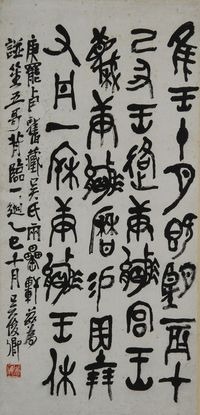 隹王十月既望辰才
己丑王各庚嬴宮王
蔑庚嬴曆易貝十朋
又丹一㭒庚嬴王休
庚羆卣舊藏吳氏兩罍軒茲為
五哥背臨一通乙巳十月吳俊卿